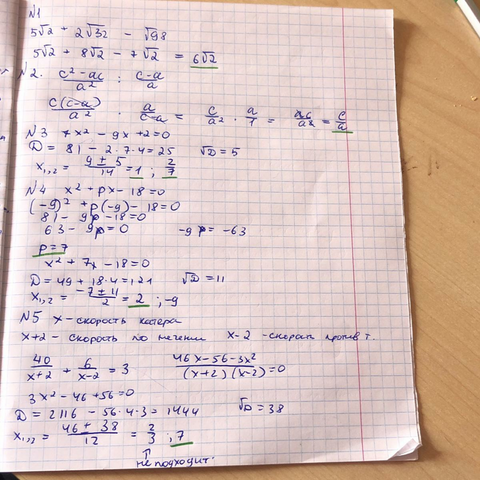 №1
5√2 + 2√32 - √98
5√2 + 8√2 - 7√2 = 6√2
№2. (c² - ac)/a² : (c-a)/a
c(c-a)/a² · a/(c-a) = c/a² · a/1 = = c/a
№3 7x² - 9x + 2 = 0
D = 81 - 2·7·4 = 25 √D = 5
x₁,₂ = (9 ± 5)/14 = 1 ; 2/7
№4 x² + px - 18 = 0
(-9)² + p(-9) - 18 = 0
81 - 9p - 18 = 0
63 - 9p = 0 -9p = -63
p = 7
x² + 7x - 18 = 0
D = 49 + 18·4 = 121 √D = 11
x₁,₂ = (-7 ± 11)/2 = 2 ; -9
№5 x - скорость катера
x+2 - скорость по течении x-2 - скорать против т.
40/(x+2) + 6/(x-2) = 3 (46x - 56 - 3x²)/((x+2)(x-2)) = 0
3x² - 46 + 56 = 0
D = 2116 - 56·4·3 = 1444 √D = 38
x₁,₂ = (46 ± 38)/12 = 2/3 , 7
↑
не подходит